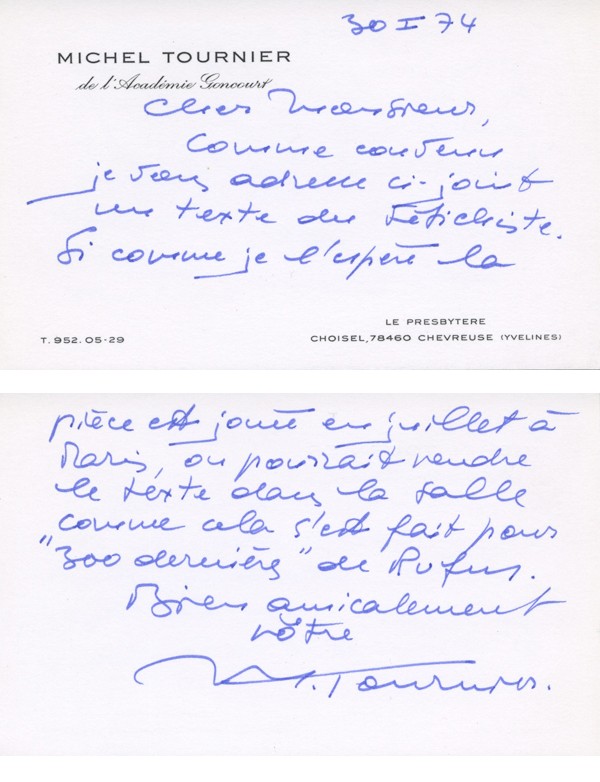 30 I 74
MICHEL TOURNIER
de l'Académie Goncourt
Cher Monsieur,
Comme convenu
je vous adresse ci-joint
un texte du Fétichiste.
Si comme je l'espère la
LE PRESBYTERE
T. 952. 05-29 CHOISEL, 78460 CHEVREUSE (YVELINES)
pièce est jouée en juillet à
Paris, on pourrait vendre
le texte dans la salle
comme cela s'est fait pour
"300 dernières" de Rufus.
Bien amicalement
vôtre
M. Tournier.